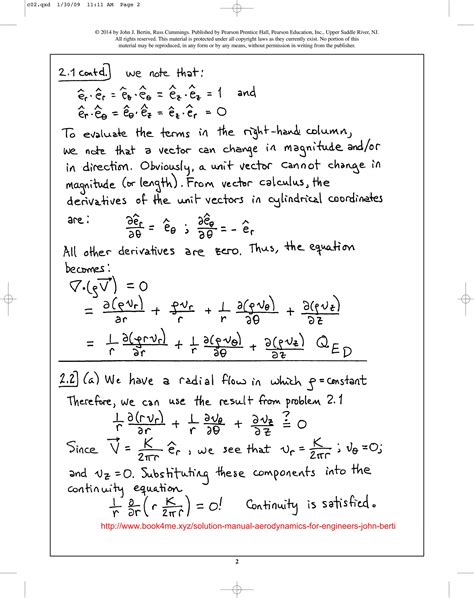 c02.qxd 1/30/09 11:11 AM Page 2
© 2014 by John J. Bertin, Russ Cummings. Published by Pearson Prentice Hall, Pearson Education, Inc., Upper Saddle River, NJ.
All rights reserved. This material is protected under all copyright laws as they currently exist. No portion of this
material may be reproduced, in any form or by any means, without permission in writing from the publisher.
2.1 contd. we note that:
ê_r · ê_r = ê_θ · ê_θ = ê_z · ê_z = 1 and
ê_r · ê_θ = ê_θ · ê_z = ê_z · ê_r = 0
To evaluate the terms in the right-hand column,
we note that a vector can change in magnitude and/or
in direction. Obviously, a unit vector cannot change in
magnitude (or length). From vector calculus, the
derivatives of the unit vectors in cylindrical coordinates
are: ∂ê_r/∂θ = ê_θ ; ∂ê_θ/∂θ = - ê_r
All other derivatives are zero. Thus, the equation
becomes:
∇·(ρV⃗) = 0
= ∂(ρv_r)/∂r + ρv_r/r + 1/r ∂(ρv_θ)/∂θ + ∂(ρv_z)/∂z
= 1/r ∂(ρrv_r)/∂r + 1/r ∂(ρv_θ)/∂θ + ∂(ρv_z)/∂z QED
2.2 (a) We have a radial flow in which ρ = constant
Therefore, we can use the result from problem 2.1
1/r ∂(rv_r)/∂r + 1/r ∂v_θ/∂θ + ∂v_z/∂z ?= 0
Since V⃗ = K/2πr ê_r, we see that v_r = K/2πr ; v_θ = 0;
and v_z = 0. Substituting these components into the
continuity equation
1/r ∂/∂r (r K/2πr) = 0! Continuity is satisfied.
http://www.book4me.xyz/solution-manual-aerodynamics-for-engineers-john-berti
2